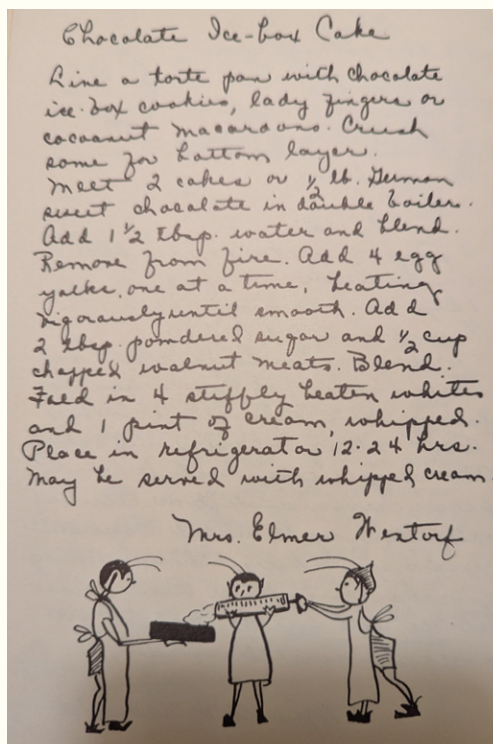 Chocolate Ice-box Cake
Line a torte pan with chocolate
ice-box cookies, lady fingers or
cocoanut macaroons. Crush
some for bottom layer.
Melt 2 cakes or 1/2 lb. German
sweet chocolate in double boiler.
Add 1 1/2 tbsp. water and blend.
Remove from fire. Add 4 egg
yolks, one at a time, beating
vigorously until smooth. Add
2 tbsp. powdered sugar and 1/2 cup
chopped walnut meats. Blend.
Fold in 4 stiffly beaten whites
and 1 pint of cream, whipped.
Place in refrigerator 12-24 hrs.
May be served with whipped cream.
Mrs. Elmer